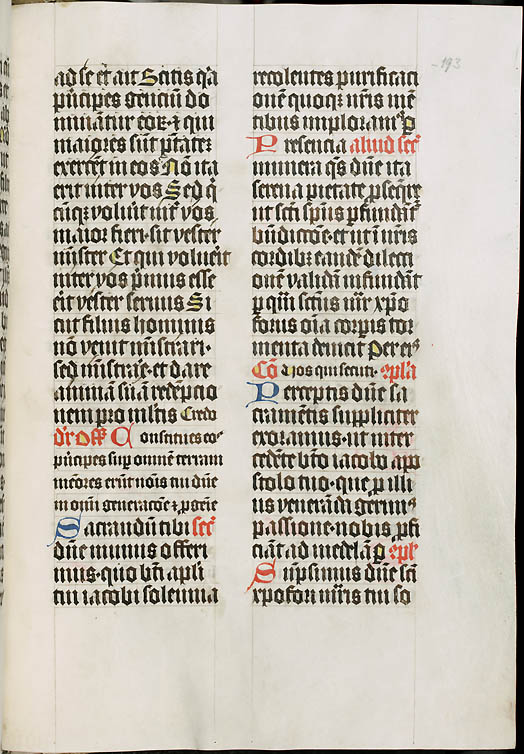 ad se et ait Scitis q̄a
pͥncipes genciū do
minātur eoꝝ ⁊ qui
maiores sūt pͣtateꝫ
exercēt in eos Nō ita
erit inter vos Sed qͥ
cūqꝫ voluit int̄ vos
maior fieri · sit vester
mīster Et qui voluēit
inter vos pͥmus esse
ēit vester seruus Si
cut filius hominis
nō venit mīstrari ·
sed mīstrare · et dare
animā suā redēpcio
nem pro mltis Credo
Cōnstitues eos
pͥncipes suꝑ omnem terram
mēores erūt nōis tui dn̄e
in omni generacōe ⁊ ꝓgēie
Sacrandū tibi sec̄
dn̄e munus offeri
mus · quo bt̄i apl̄i
tui iacobi solemnia
193
recolentes purificaci
onē quoqꝫ nr̄is mē
tibus imploramꝰ ꝑ
Presencia aliud sec̄
munera qs̄ dn̄e ita
serena pietate ꝓseqͤre
ut sc̄i spūs ꝑfundāt̄
bn̄dictōe · et ut ī nr̄is
cordibꝫ eandē dilecti
onē validā infundāt
ꝑ quā sc̄tus mr̄ xp̄o
forus oīa corꝑis tor
menta deuicit Per eͥꝰ
Cō̄ Uos qui secuti · ꝯpl̄a
Perceptis dn̄e sa
cramētis suppliciter
exoramus · ut inter
cedēte bt̄o iacobo apo
stolo tuo · que ꝓ illi
us venerāda gerimꝰ
passione · nobis ꝓfi
ciāt ad medelā ꝑ ꝯpl̄
Sūpsimus dn̄e sc̄i
xp̄ofori mr̄is tui so